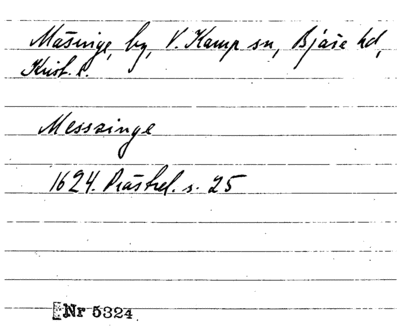 Måsinge, by, V. Kamp sn, Bjäre hd,
Krist. l.
Messzinge
1624. Prästrel. s. 25
Nr 5324